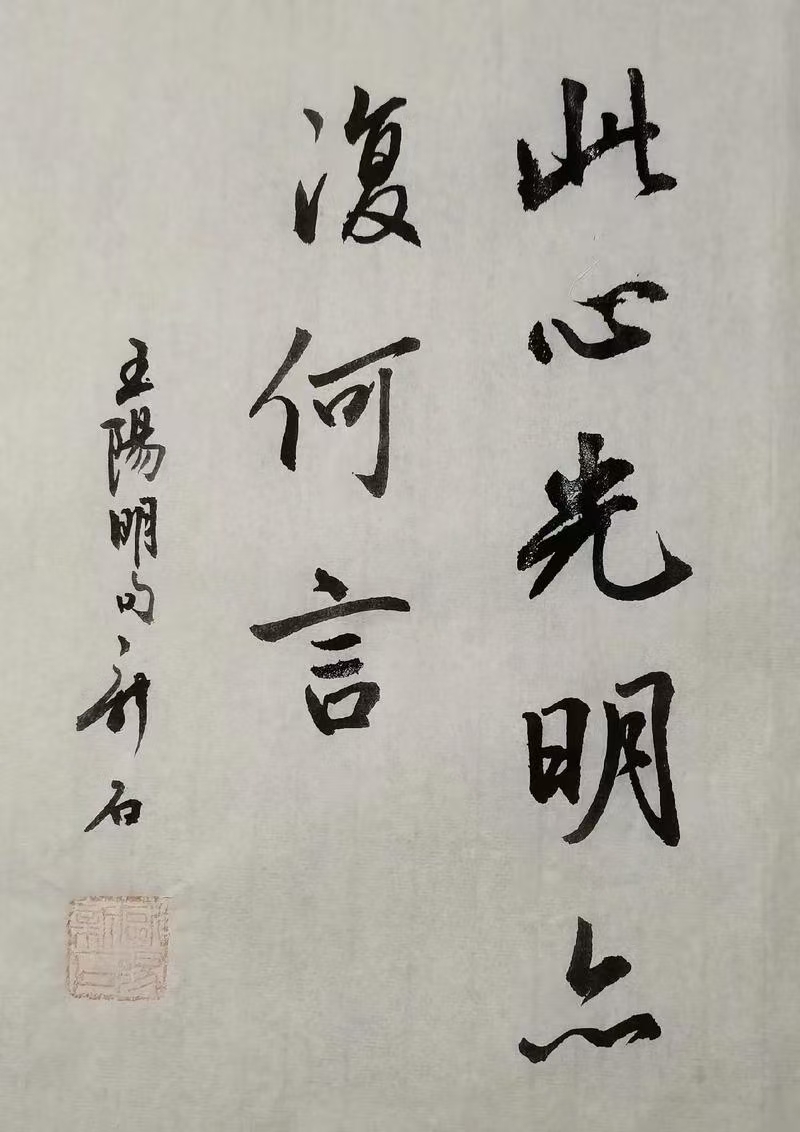 此心光明亦
復何言
王陽明句新石